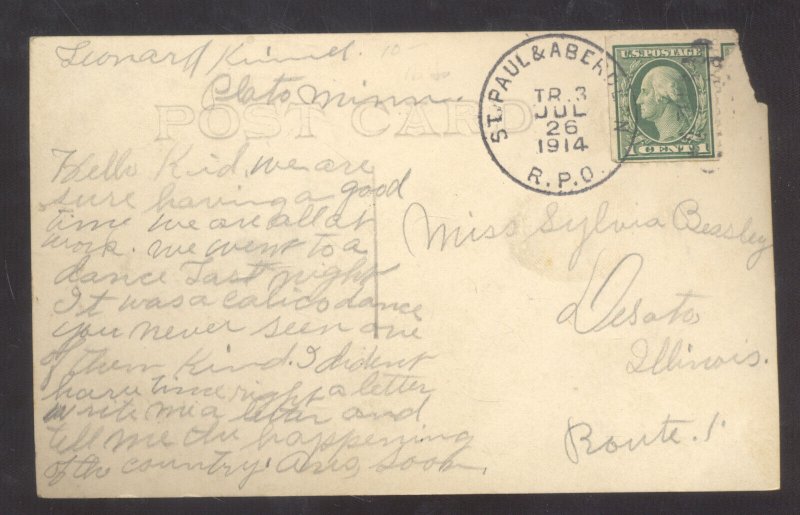 Leonard Kinnel.
Plato Minn
POST CARD
ST. PAUL & ABER
TR. 3
JUL
26
1914
R.P.O.
U.S. POSTAGE
1 CENT 1
Hello Kid, we are
sure having a good
time we are all at
work. we went to a
dance Last night
It was a calico dance
you never seen one
of them Kind. I dident
have time right a letter
write me a letter and
tell me the happening
of the country. Ans, soon.
Miss Sylvia Beasley
Desoto,
Illinois.
Route. 1